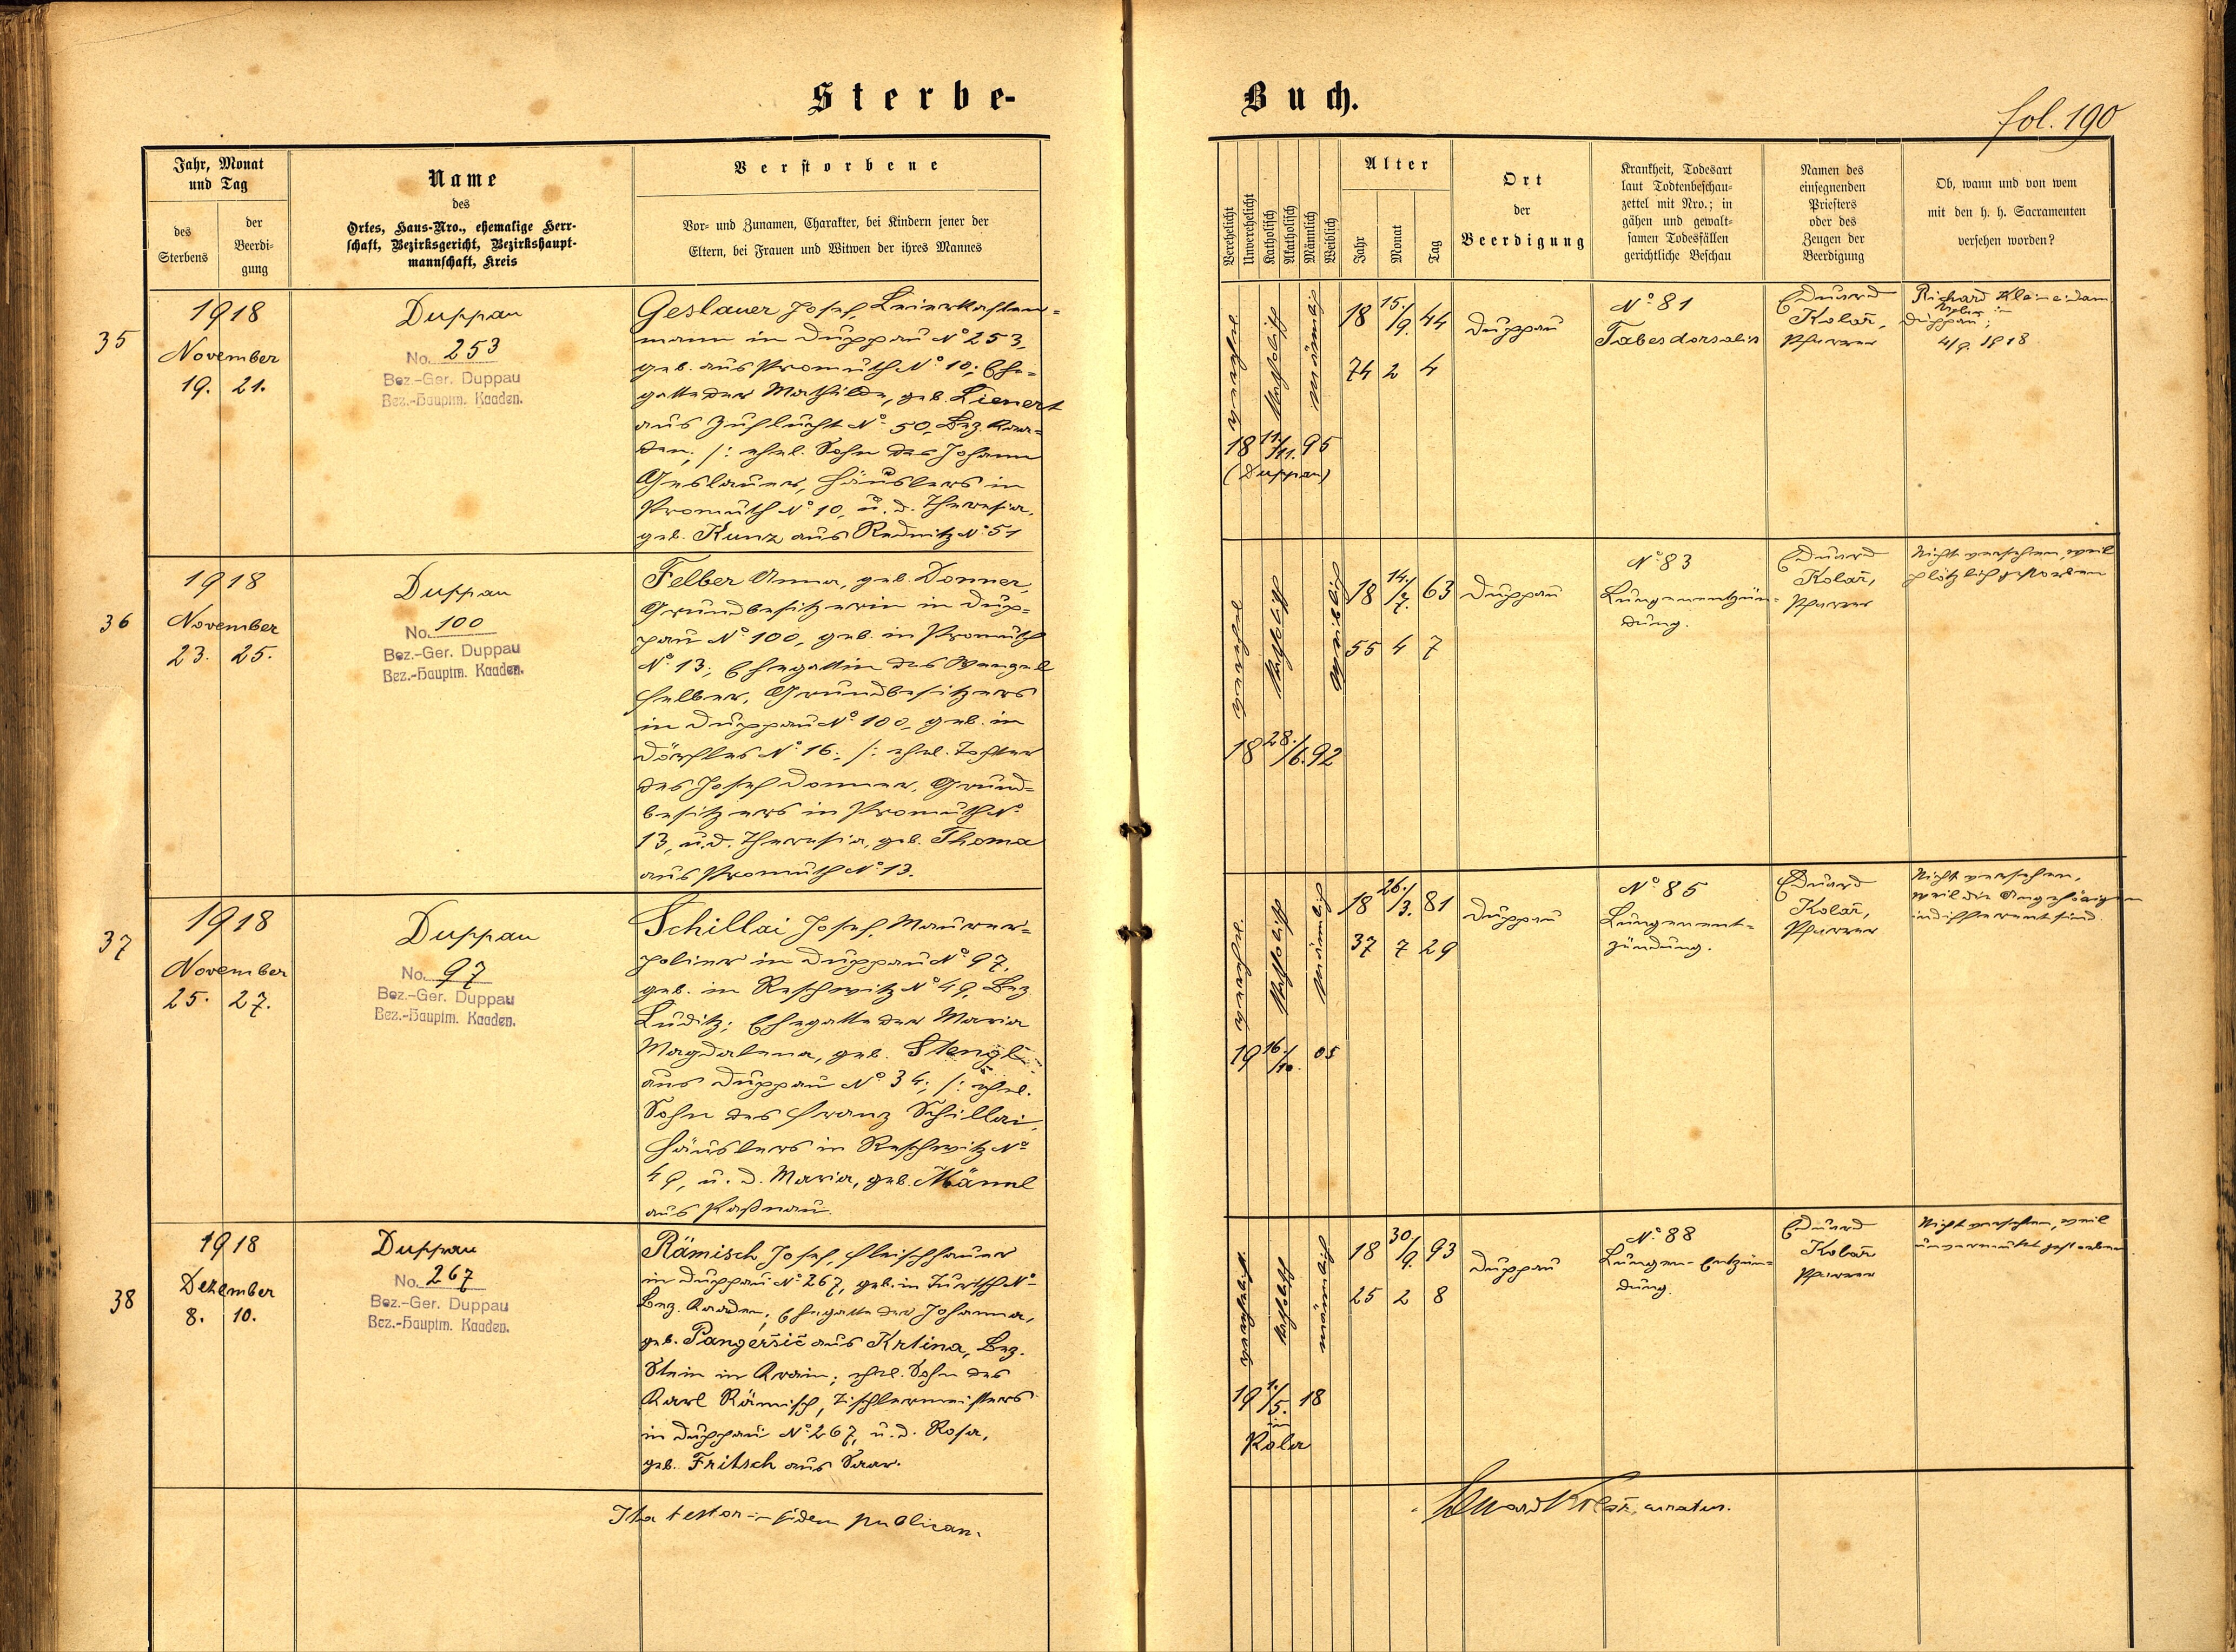 Sterbe-
Buch.
fol. 190
Jahr, Monat
und Tag
des
Sterbens
der
Beerdi-
gung
Name
des
Ortes, Haus-Nro., ehemalige Herr-
schaft, Bezirksgericht, Bezirkshaupt-
mannschaft, Kreis
Verstorbene
Vor- und Zunamen, Charakter, bei Kindern jener der
Eltern, bei Frauen und Witwen der ihres Mannes
Verehelicht
Unverehelicht
Katholisch
Akatholisch
Männlich
Weiblich
Alter
Jahr
Monat
Tag
Ort
der
Beerdigung
Krankheit, Todesart
laut Todtenbeschau-
zettel mit Nro.; in
gähen und gewalt-
samen Todesfällen
gerichtliche Beschau
Namen des
einsegnenden
Priesters
oder des
Zeugen der
Beerdigung
Ob, wann und von wem
mit den h. h. Sacramenten
versehen worden?
35
1918
November
19. 21.
Duppau
No. 253
Bez.-Ger. Duppau
Bez.-Hauptm. Kaaden.
Geslauer Josef, Leierkasten=
mann in Duppau No 253,
geb. aus Promuth No 10; Ehe=
gatte der Mathilde, geb. Lienert
aus Zuflucht No 50, Bez. Kaa=
den; /: ehel. Sohn des Johann
Geslauer, Häuslers in
Promuth No 10, u. d. Theresia,
geb. Kunz aus Rednitz No 51
verehel.
katholisch
männlich
18 11./11. 95
(Duppau)
18 15./9. 44
74 2 4
Duppau
No 81
Tabes dorsalis
Eduard
Kolař,
Pfarrer
Richard Kleineidam
Kaplan in
Duppau;
4/9. 1918
36
1918
November
23. 25.
Duppau
No. 100
Bez.-Ger. Duppau
Bez.-Hauptm. Kaaden.
Felber Anna, geb. Donner,
Grundbesitzerin in Dup=
pau No 100, geb. in Promuth
No 13; Ehegattin des Wenzel
Felber, Grundbesitzers
in Duppau No 100, geb. in
Dörfles No 16; /: ehel. Tochter
des Josef Donner, Grund=
besitzers in Promuth No
13, u. d. Theresia, geb. Thoma
aus Promuth No 13.
verehel.
katholisch
weiblich
18 28./6. 92
18 14./7. 63
55 4 7
Duppau
No 83
Lungenentzün=
dung.
Eduard
Kolař,
Pfarrer
Nicht versehen, weil
plötzlich gestorben
37
1918
November
25. 27.
Duppau
No. 97
Bez.-Ger. Duppau
Bez.-Hauptm. Kaaden.
Schillai Josef, Maurer=
polier in Duppau No 97,
geb. in Reschwitz No 49, Bez.
Luditz; Ehegatte der Maria
Magdalena, geb. Stengl
aus Duppau No 34; /: ehel.
Sohn des Franz Schillai,
Häuslers in Reschwitz No
49, u. d. Maria, geb. Männl
aus Paßnau.
verehel.
katholisch
männlich
19 16./10. 05
18 26./3. 81
37 7 29
Duppau
No 85
Lungenent=
zündung.
Eduard
Kolař,
Pfarrer
Nicht versehen,
weil die Angehörigen
indifferent sind.
38
1918
Dezember
8. 10.
Duppau
No. 267
Bez.-Ger. Duppau
Bez.-Hauptm. Kaaden.
Rämisch Josef, Fleischhauer
in Duppau No 267, geb. in Turtsch No
Bez. Kaaden; Ehegatte der Johanna,
geb. Pangeršič aus Krtina, Bez.
Stein in Krain; ehel. Sohn des
Karl Rämisch, Tischlermeisters
in Duppau No 267, u. d. Rosa,
geb. Fritsch aus Saar.
verehelicht
katholisch
männlich
19 1./5. 18
in
18 30./9. 93
25 2 8
Duppau
No 88
Lungen-Entzün=
dung.
Eduard
Kolař
Pfarrer
Nicht versehen, weil
unvermutet gestorben
Ita testor in fidem publicam.
Eduard Kolař, curatus.